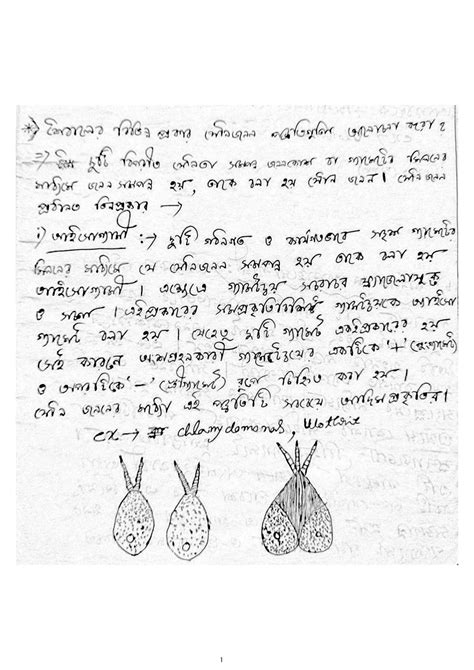 *) শৈবালের বিভিন্ন প্রকার যৌনজনন পদ্ধতিগুলি আলোচনা করো ?
=> দুটি বিপরীত যৌনতা সম্পন্ন জননকোশ বা গ্যামেটের মিলনের
মাধ্যমে জনন সম্পন্ন হয়, তাকে বলা হয় যৌন জনন। যৌন জনন
প্রধানত তিনপ্রকার →
i) আইসোগ্যামী :→ দুটি গঠনগত ও কার্যগতভাবে সদৃশ গ্যামেটের
মিলনের মাধ্যমে যে যৌনজনন সম্পন্ন হয় তাকে বলা হয়
আইসোগ্যামী। এক্ষেত্রে গ্যামেটদ্বয় সাধারণত ফ্ল্যাজেলাযুক্ত
ও সচল। এইপ্রকারের সমপ্রকৃতিবিশিষ্ট গ্যামেটদ্বয়কে আইসো
গ্যামেট বলা হয়। যেহেতু দুটি গ্যামেট একইপ্রকারের হয়
সেই কারনে অংশগ্রহনকারী গ্যামেটদ্বয়ের একটিকে '+' (পুংগ্যামেট)
ও অপরটিকে '–' (স্ত্রীগ্যামেট) রূপে চিহ্নিত করা হয়।
যৌন জননের মধ্যে এই পদ্ধতিটি সবচেয়ে আদিমপ্রকৃতির।
ex → chlamydomonas, Ulothrix
1